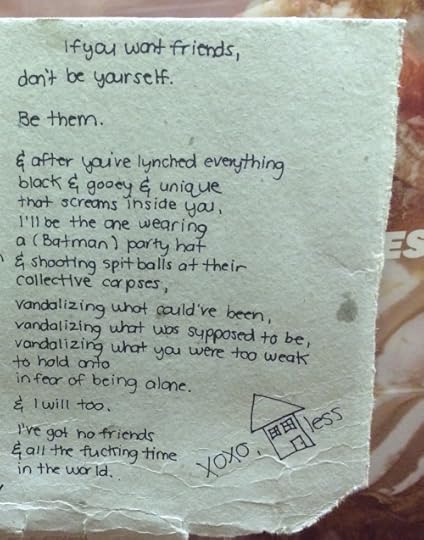 If you want friends,
don't be yourself.
Be them.
& after you've lynched everything
black & gooey & unique
that screams inside you,
I'll be the one wearing
a (Batman) party hat
& shooting spit balls at their
collective corpses,
vandalizing what could've been,
vandalizing what was supposed to be,
vandalizing what you were too weak
to hold onto
in fear of being alone.
& I will too.
I've got no friends
& all the fucking time
in the world.
xoxo, less
ES